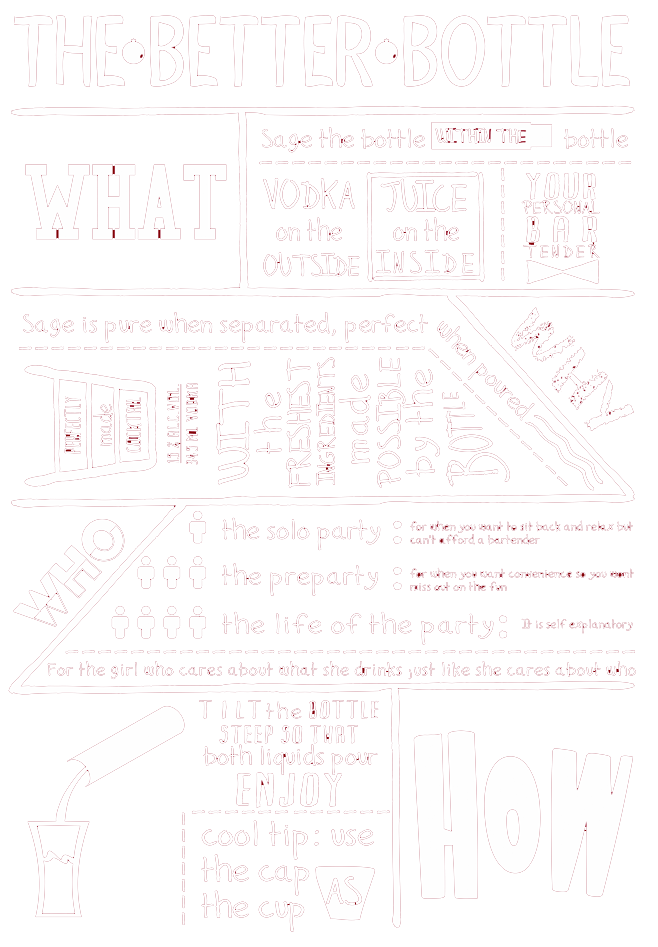 THE • BETTER • BOTTLE
WHAT
Sage the bottle WITHIN THE bottle
VODKA
on the
OUTSIDE
JUICE
on the
INSIDE
YOUR
PERSONAL
BAR
TENDER
Sage is pure when separated, perfect when poured
WHY
PERFECTLY
made
COCKTAIL
WITH
the
FRESHEST
INGREDIENTS
made
POSSIBLE
by the
BOTTLE
WHO
the solo party : for when you want to sit back and relax but
can't afford a bartender
the preparty : for when you want convenience so you dont
miss out on the fun
the life of the party: It is self explanatory
For the girl who cares about what she drinks just like she cares about who
TILT the BOTTLE
STEEP SO THAT
both liquids pour
ENJOY
cool tip: use
the cap AS
the cup
HOW